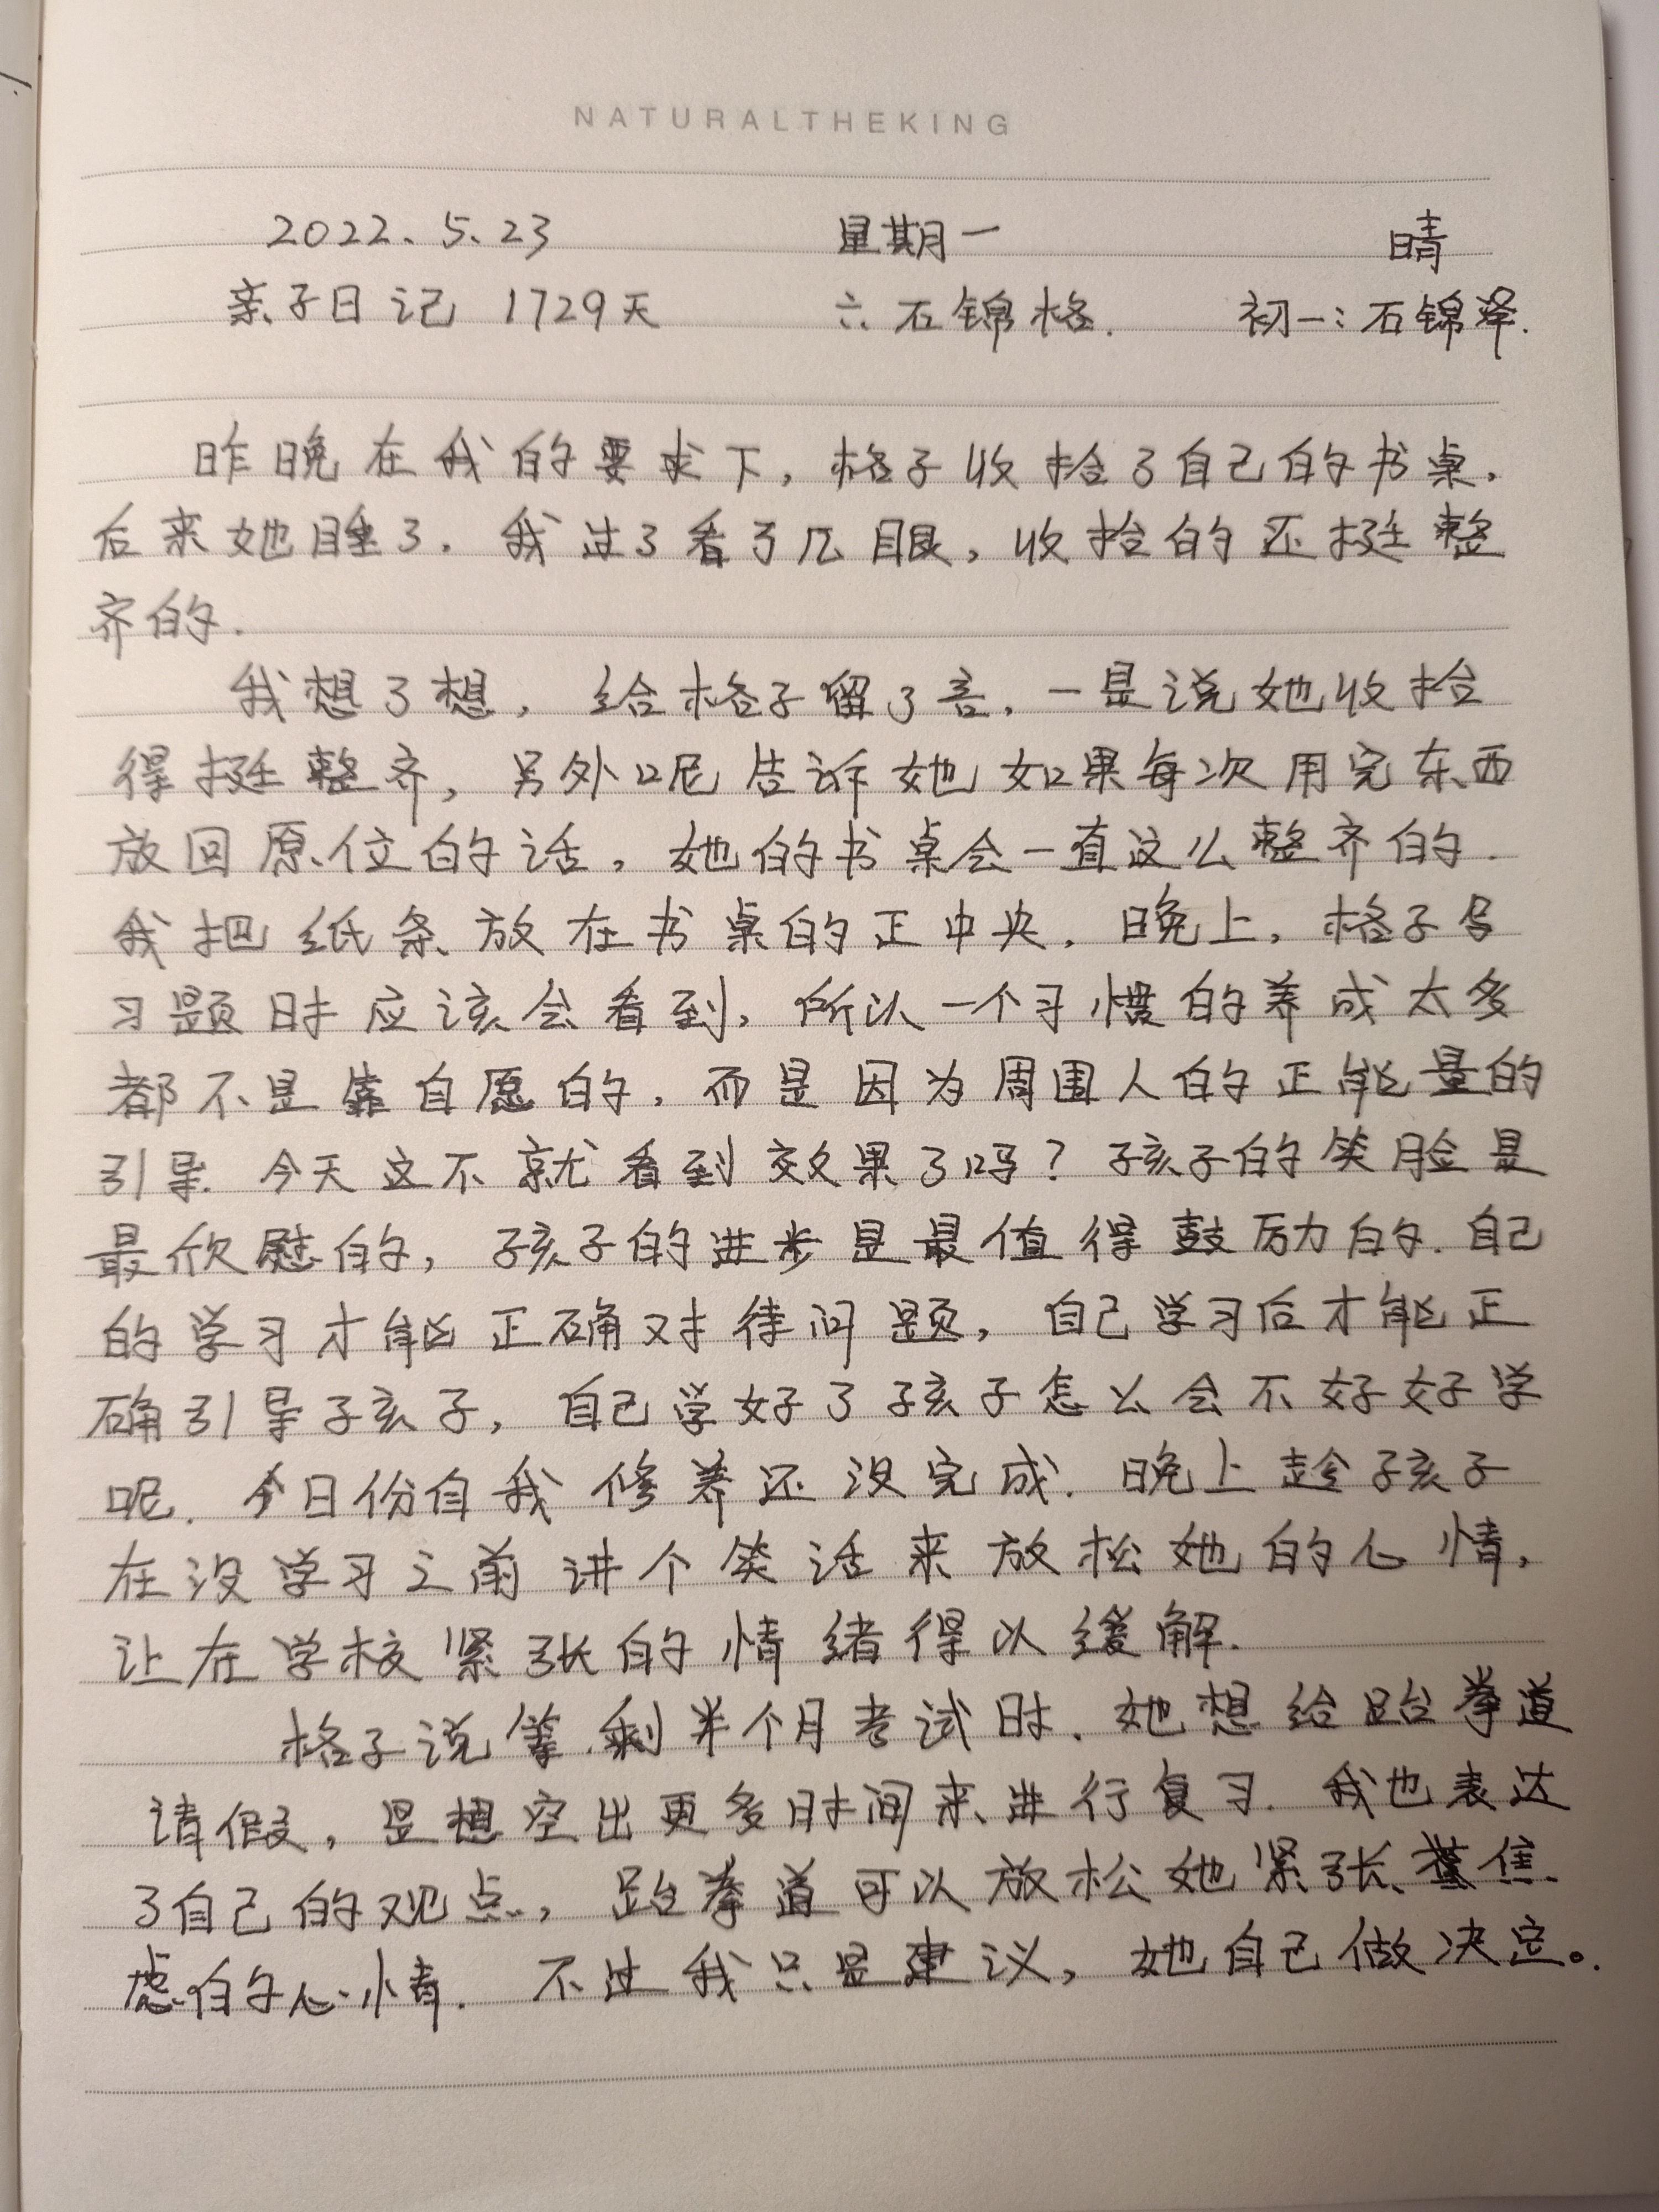 NATURALTHEKING
2022.5.23 星期一 晴
亲子日记 1729天 六:石锦格. 初一:石锦泽.
昨晚在我的要求下,格子收拾了自己的书桌.
后来她睡了.我过了看了几眼,收拾的还挺整
齐的.
我想了想,给格子留了言.一是说她收拾
得挺整齐,另外呢告诉她如果每次用完东西
放回原位的话,她的书桌会一直这么整齐的.
我把纸条放在书桌的正中央.晚上,格子写
习题时应该会看到,所以一个习惯的养成太多
都不是靠自愿的,而是因为周围人的正能量的
引导.今天这不就看到效果了吗?孩子的笑脸是
最欣慰的,孩子的进步是最值得鼓励的.自己
的学习才能正确对待问题,自己学习后才能正
确引导孩子,自己学好了孩子怎么会不好好学
呢.今日份自我修养还没完成.晚上趁孩子
在没学习之前讲个笑话来放松她的心情,
让在学校紧张的情绪得以缓解.
格子说等剩半个月考试时.她想给跆拳道
请假,是想空出更多时间来进行复习.我也表达
了自己的观点,跆拳道可以放松她紧张焦
虑的心情.不过我只是建议,她自己做决定。